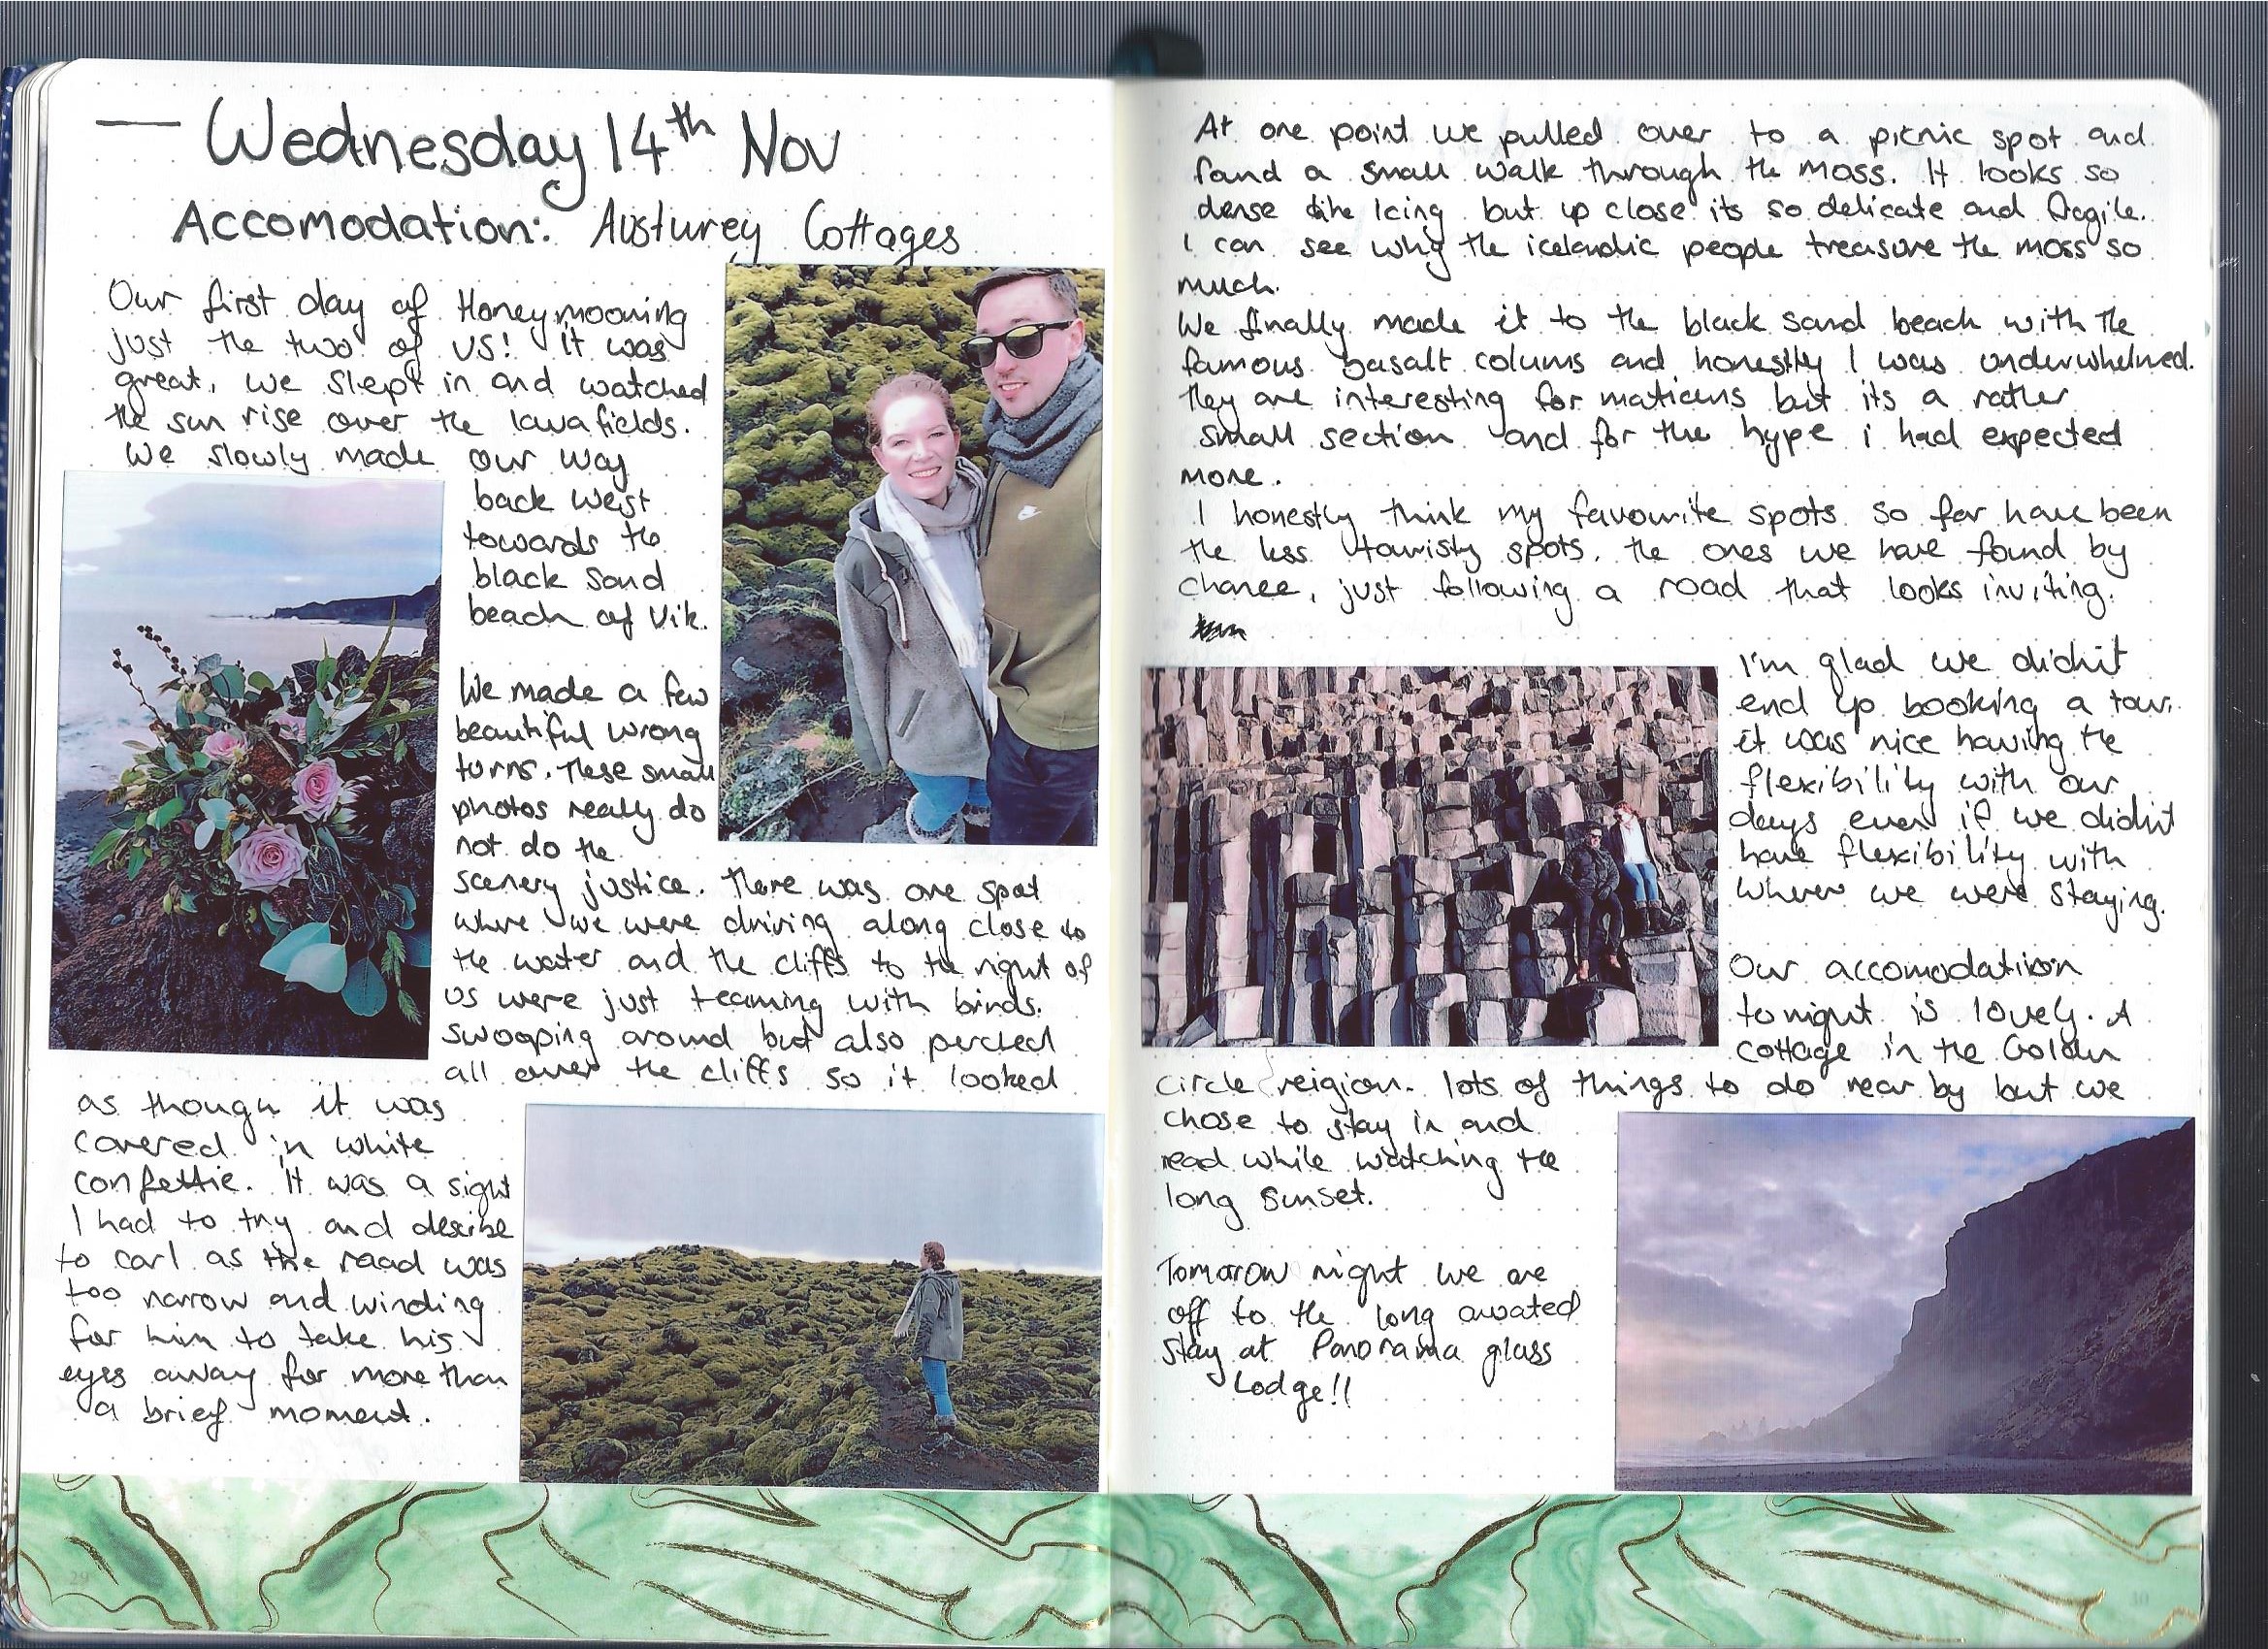 Wednesday 14th Nov
Accomodation: Austurey Cottages
Our first day of Honeymooning
just the two of us! It was
great, we slept in and watched
the sun rise over the lava fields.
We slowly made our way
back west
towards the
black sand
beach of Vik.
We made a few
beautiful wrong
turns. These small
photos really do
not do the
scenery justice. There was one spot
where we were driving along close to
the water and the cliffs to the right of
us were just teaming with birds.
swooping around but also perched
all over the cliffs so it looked
as though it was
covered in white
confettie. It was a sight
I had to try and descibe
to carl as the road was
too narrow and winding
for him to take his
eyes away for more than
a brief moment.
29
At one point we pulled over to a picnic spot and
found a small walk through the moss. It looks so
dense like Icing but up close its so delicate and fragile.
I can see why the icelandic people treasure the moss so
much.
We finally made it to the black sand beach with the
famous basalt colums and honestly I was underwhelmed.
they are interesting for but its a rather
small section and for the hype i had expected
more.
I honestly think my favourite spots so far have been
the less touristy spots. the ones we have found by
chance, just following a road that looks inviting.
I'm glad we didn't
end up booking a tour.
it was nice having the
flexibility with our
days even if we didn't
have flexibility with
where we were staying.
Our accomodation
tonight is lovely. A
cottage in the Golden
circle reigion. lots of things to do near by but we
chose to stay in and
read while watching the
long sunset.
Tomorrow night we are
off to the long awated
stay at Panorama glass
Lodge!!
30